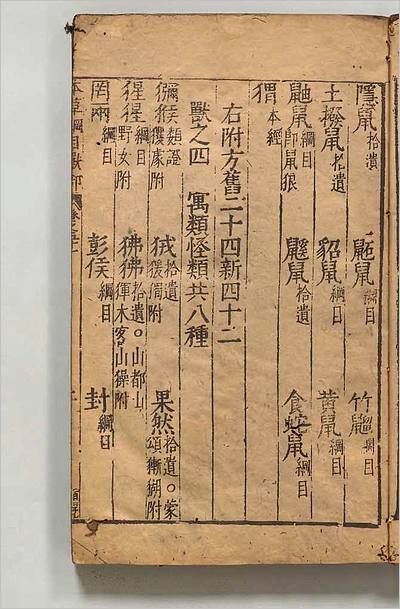 隱鼠拾遺 鼫鼠綱目 竹䶉綱目
土撥鼠拾遺 貂鼠綱目 黃鼠綱目
鼬鼠綱目即鼠狼 鼷鼠拾遺 食蛇鼠綱目
猬本經
右附方舊二十四新四十二
獸之四 寓類怪類共八種
獼猴證類玃豦附 狨拾遺猨附 果然拾遺○蒙頌獑猢附
猩猩綱目野女附 狒狒拾遺○山都山𤟤木客山操附
罔兩綱目 彭侯綱目 封綱目
本草綱目獸部